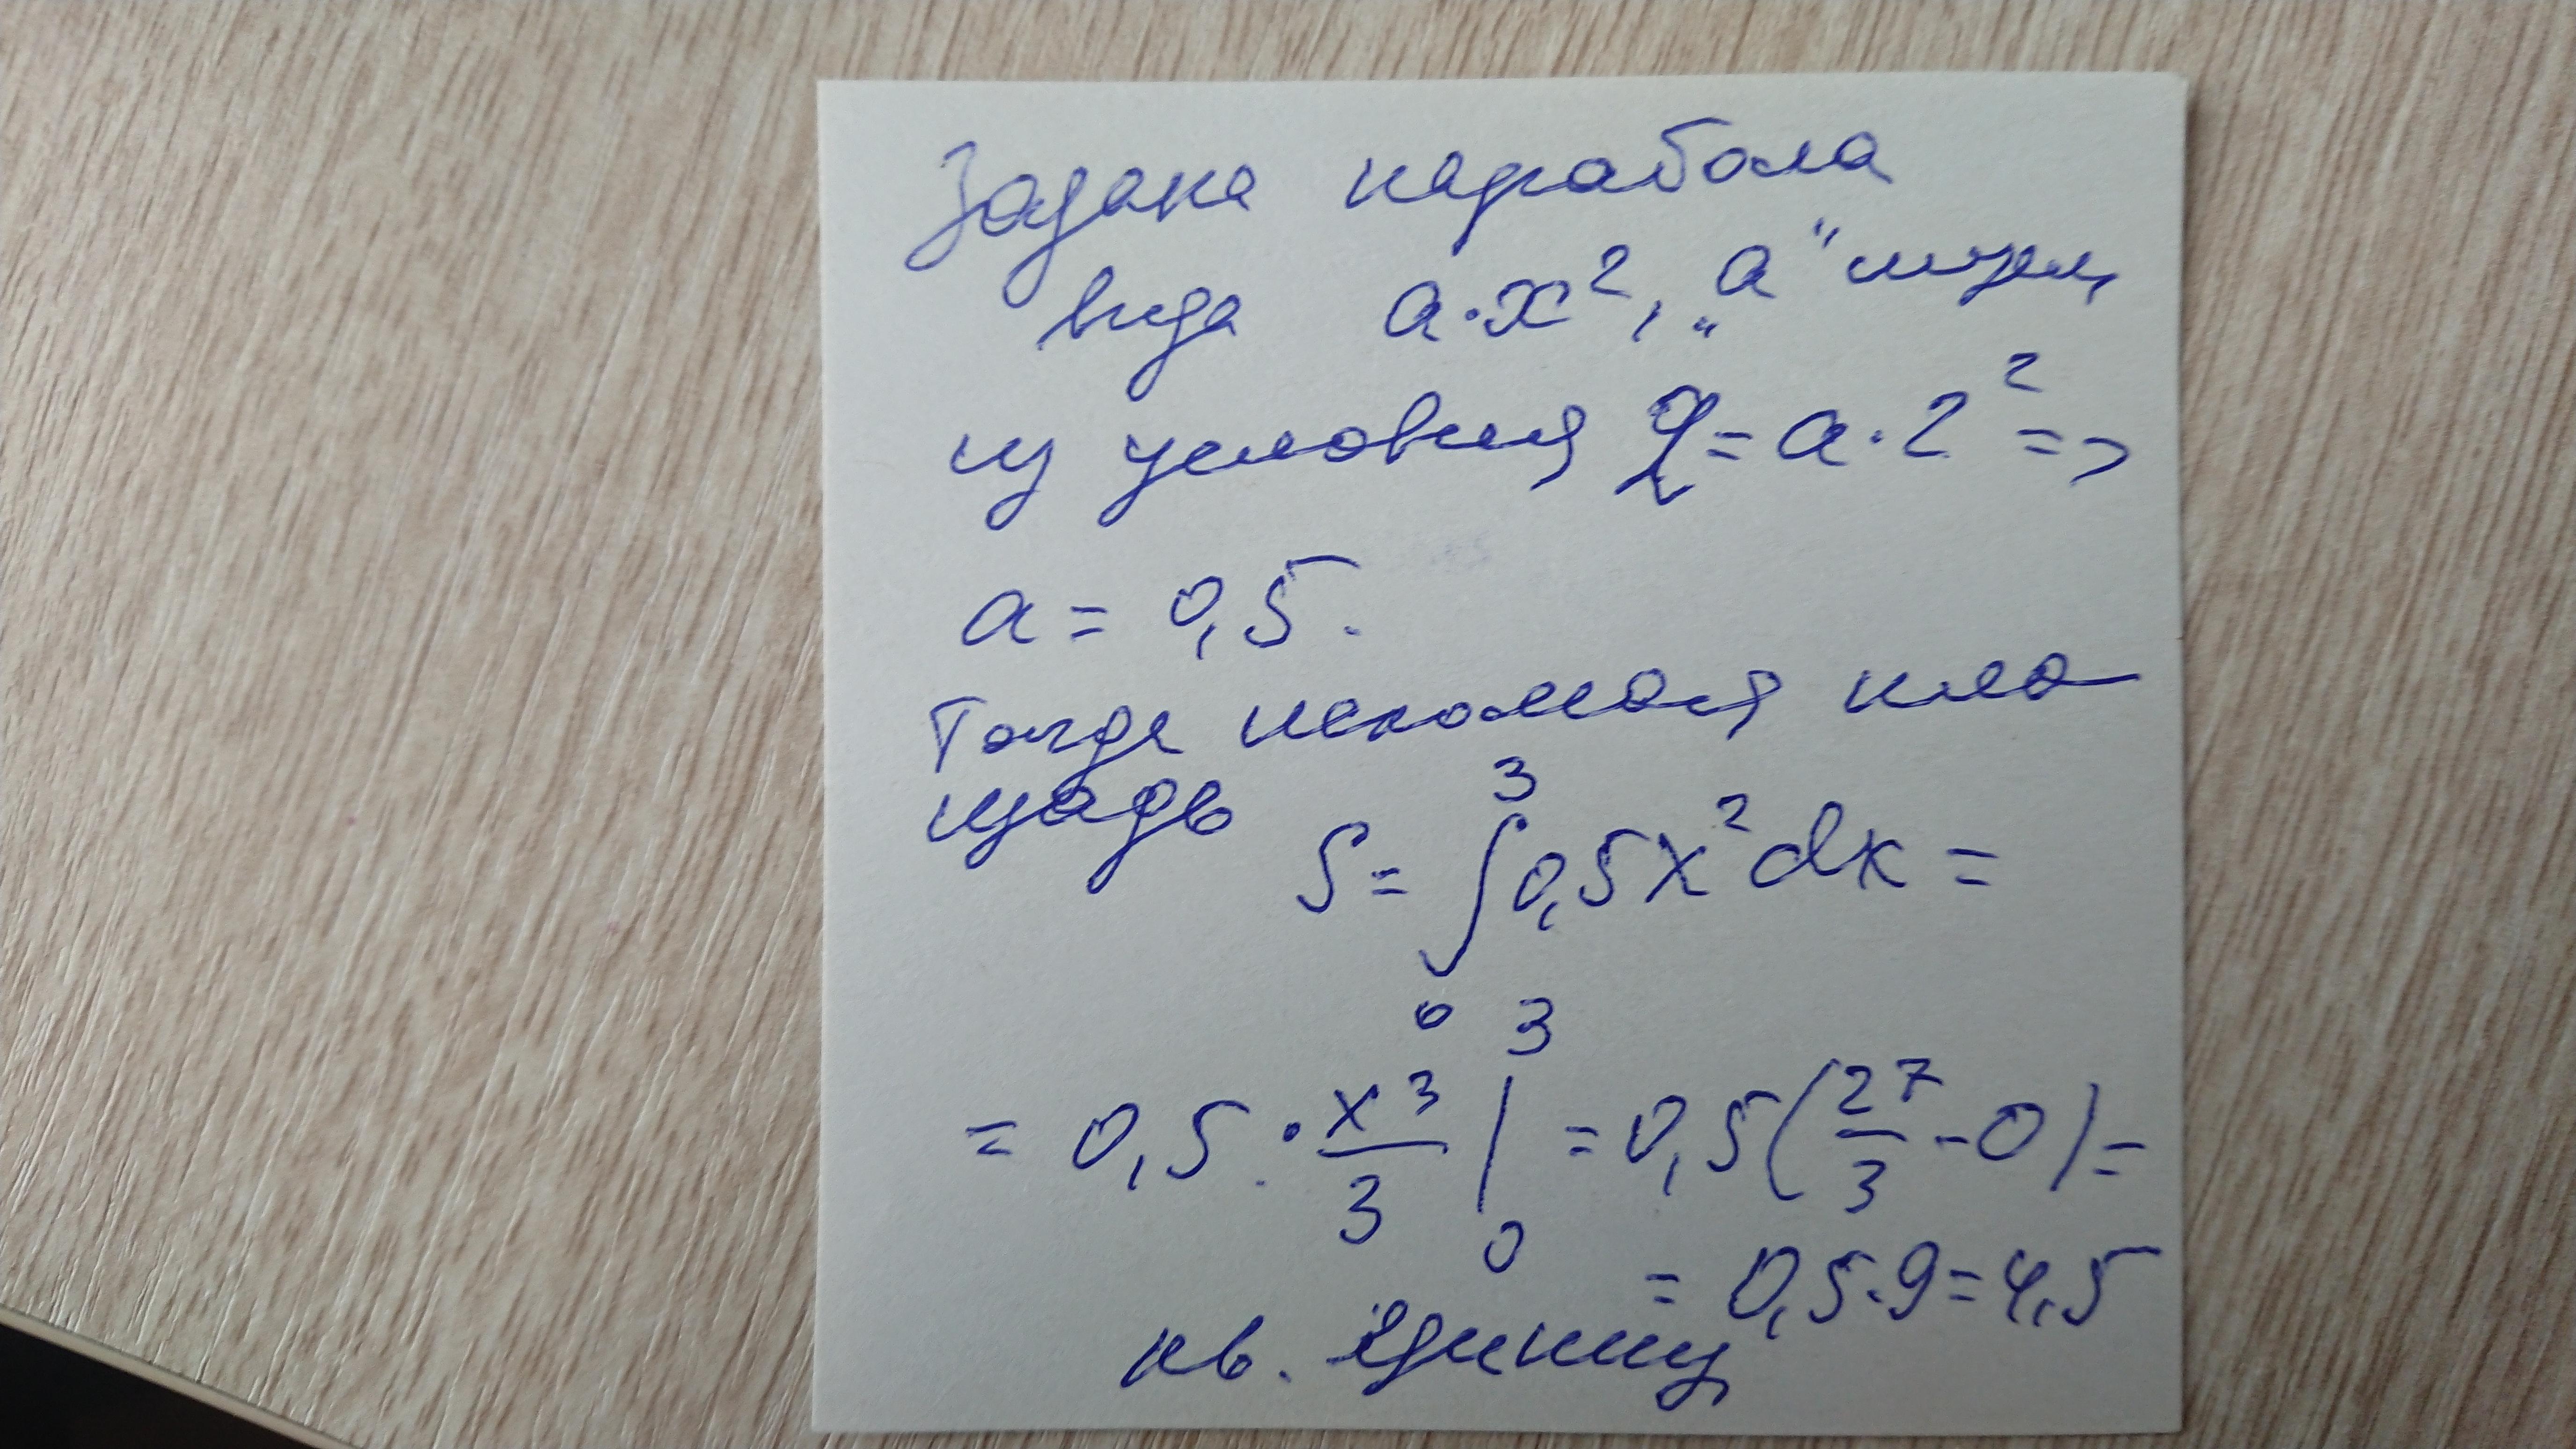 Задана парабола
вида a·x², „a" ищем
из условия 2=a·2² =>
a = 0,5.
Тогда искомая пло-
щадь S = ∫₀³ 0,5x²dx =
= 0,5 · x³/3 |₀³ = 0,5(27/3 - 0) =
= 0,5·9 = 4,5
кв. единиц